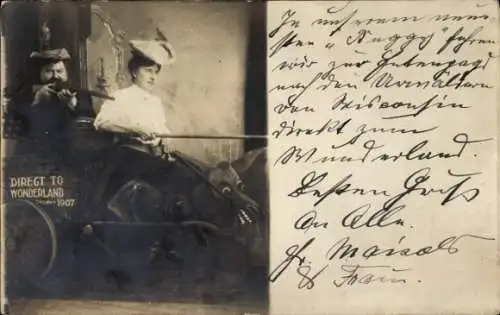 DIREGT TO
WONDERLAND
1907
In unserem neus
ten "Buggy" fahren
wir zur Entenjagd
nach den Urwäldern
von Wisconsin
direkt zum
Wunderland.
Besten Gruss
An Alle.
Fr.
& Frau.